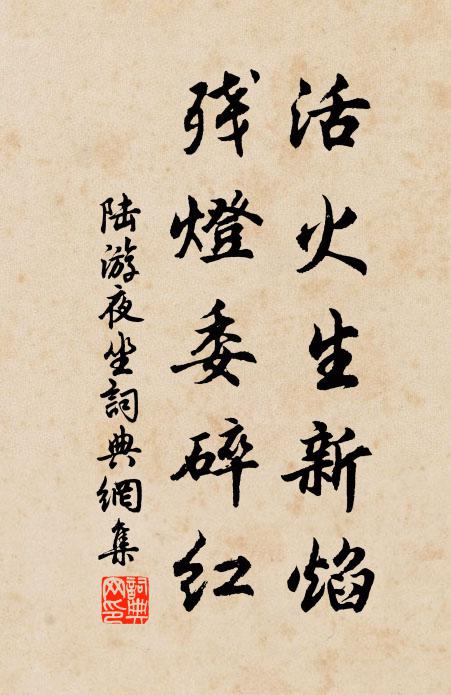 活火生新焰
残燈委碎红
陆游夜坐詞典網集
詞典网印